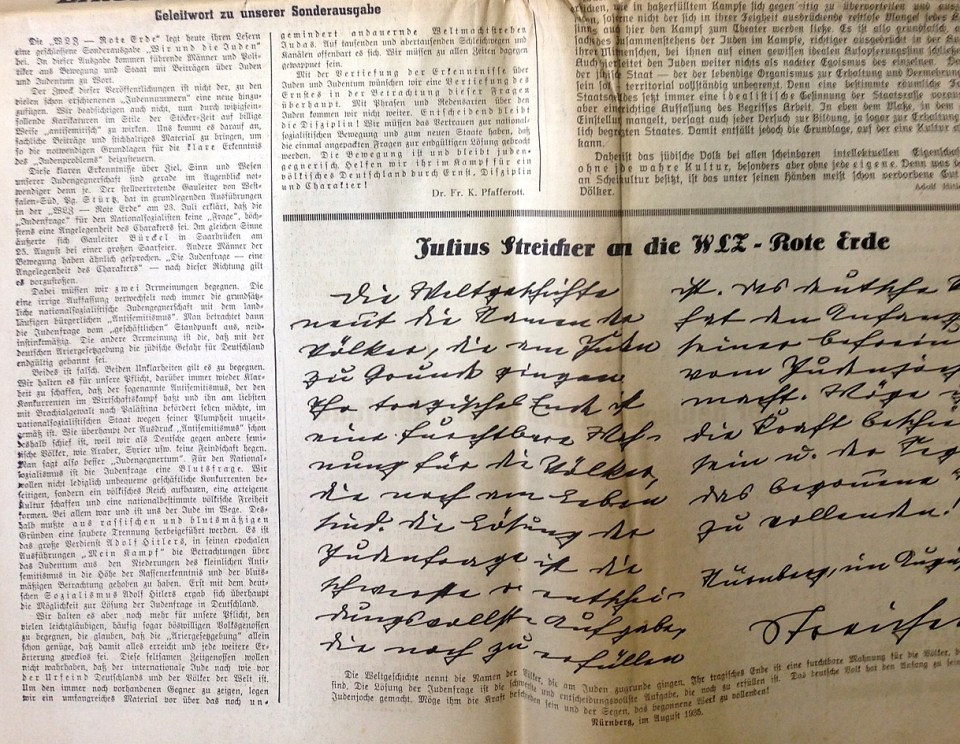 Geleitwort zu unserer Sonderausgabe
Die „WLZ — Rote Erde" legt heute ihren Lesern
eine geschlossene Sonderausgabe „Wir und die Juden"
bei. In dieser Ausgabe kommen führende Männer und Poli-
tiker aus Bewegung und Staat mit Beiträgen über Juden
und Judentum zu Wort.
Der Zweck dieser Veröffentlichungen ist nicht der, zu den
vielen schon erschienenen „Judennummern" eine neue hinzu-
zufügen. Wir beabsichtigen auch nicht, nun durch witzgein-
fallende Karikaturen im Stile der Stöcker-Zeit auf billige
Weise „antisemitisch" zu wirken. Uns kommt es darauf an,
sachliche Beiträge und stichhaltiges Material zu bringen, um
so die notwendigen Grundlagen für die klare Erkenntnis
des „Judenproblems" beizusteuern.
Diese klaren Erkenntnisse über Ziel, Sinn und Wesen
unserer Judengegnerschaft sind gerade im Augenblick not-
wendiger denn je. Der stellvertretende Gauleiter von West-
falen-Süd, Pg. Stürtz, hat in grundlegenden Ausführungen
in der „WLZ — Rote Erde" am 23. Juli erklärt, daß die
„Judenfrage" für den Nationalsozialisten keine „Frage", höch-
stens eine Angelegenheit des Charakters sei. Im gleichen Sinne
äußerte sich Gauleiter Bürckel in Saarbrücken am
25. August bei einer großen Saarfeier. Andere Männer der
Bewegung haben ähnlich gesprochen. „Die Judenfrage — eine
Angelegenheit des Charakters" — nach dieser Richtung gilt
es vorzustoßen.
Dabei müssen wir zwei Irrmeinungen begegnen. Die
eine irrige Auffassung verwechselt noch immer die grundsätz-
liche nationalsozialistische Judengegnerschaft mit dem land-
läufigen bürgerlichen „Antisemitismus". Man betrachtet dann
die Judenfrage vom „geschäftlichen" Standpunkt aus, neid-
instinktmäßig. Die andere Irrmeinung ist die, daß mit der
deutschen Ariergesetzgebung die jüdische Gefahr für Deutschland
endgültig gebannt sei.
Beides ist falsch. Beiden Unklarheiten gilt es zu begegnen.
Wir halten es für unsere Pflicht, darüber immer wieder Klar-
heit zu schaffen, daß der sogenannte Antisemitismus, der den
Konkurrenten im Wirtschaftskampf haßt und ihn am liebsten
mit Brachialgewalt nach Palästina befördert sehen möchte, im
nationalsozialistischen Staat wegen seiner Plumpheit unzeit-
gemäß ist. Wie überhaupt der Ausdruck „Antisemitismus" schon
deshalb schief ist, weil wir als Deutsche gegen andere semi-
tische Völker, wie Araber, Syrier usw. keine Feindschaft hegen.
Man sagt also besser „Judengegnertum". Für den National-
sozialismus ist die Judenfrage eine Blutsfrage. Wir
wollen nicht lediglich unbequeme geschäftliche Konkurrenten be-
seitigen, sondern ein völkisches Reich aufbauen, eine arteigene
Kultur schaffen und eine nationalbestimmte völkische Freiheit
formen. Bei allem war und ist uns der Jude im Wege. Des-
halb mußte aus rassischen und blutsmäßigen
Gründen eine saubere Trennung herbeigeführt werden. Es ist
das große Verdienst Adolf Hitlers, in seinen epochalen
Ausführungen „Mein Kampf" die Betrachtungen über
das Judentum aus den Niederungen des kleinlichen Anti-
semitismus in die Höhe der Rassenerkenntnis und der bluts-
mäßigen Betrachtung gehoben zu haben. Erst mit dem deut-
schen Sozialismus Adolf Hitlers ergab sich überhaupt
die Möglichkeit zur Lösung der Judenfrage in Deutschland.
Wir halten es aber noch mehr für unsere Pflicht, den
vielen leichtgläubigen, häufig sogar böswilligen Volksgenossen
zu begegnen, die glauben, daß die „Ariergesetzgebung" allein
schon genüge, daß damit alles erreicht und jede weitere Er-
örterung zwecklos sei. Diese seltsamen Zeitgenossen wollen
nicht wahrhaben, daß der internationale Jude nach wie vor
der Urfeind Deutschlands und der Völker der Welt ist.
Um den immer noch vorhandenen Gegner zu zeigen, legen
wir ein umfangreiches Material vor über das noch un-
gemindert andauernde Weltmachtstreben
Judas. Auf tausenden und abertausenden Schleichwegen und
Kanälen offenbart es sich. Wir müssen zu allen Zeiten dagegen
gewappnet sein.
Mit der Vertiefung der Erkenntnisse über
Juden und Judentum wünschen wir eine Vertiefung des
Ernstes in der Betrachtung dieser Fragen
überhaupt. Mit Phrasen und Redensarten über den
Juden kommen wir nicht weiter. Entscheidend bleibt
die Disziplin! Wir müssen das Vertrauen zur national-
sozialistischen Bewegung und zum neuen Staate haben, daß
die einmal angepackten Fragen zur endgültigen Lösung gebracht
werden. Die Bewegung ist und bleibt juden-
gegnerisch. Helfen wir ihr im Kampf für ein
völkisches Deutschland durch Ernst, Disziplin
und Charakter!
Dr. Fr. K. Pfafferott.
wie in haßerfülltem Kampfe sich gegenseitig zu übervorteilen und
sofern nicht der sich in ihrer Feigheit ausdrückende restlose Mangel jedes
sinns auch hier den Kampf zum Theater werden ließe. Es ist also grundfalsch,
Zusammenstehens der Juden im Kampfe, richtiger ausgedrückt in der
ihrer Mitmenschen, bei ihnen auf einen gewissen idealen Aufopferungssinn schließen
Auch hier leitet den Juden weiter nichts als nackter Egoismus des einzelnen.
der jüdische Staat — der der lebendige Organismus zur Erhaltung und Vermehrung
sein soll — territorial vollständig unbegrenzt. Denn eine bestimmte räumliche
Staatsgebildes setzt immer eine idealistische Gesinnung der Staatsrasse voraus,
aber eine richtige Auffassung des Begriffes Arbeit. In eben dem Maße, in dem
Einstellung mangelt, versagt auch jeder Versuch zur Bildung, ja sogar zur Erhaltung
lich begrenzten Staates. Damit entfällt jedoch die Grundlage, auf der eine Kultur
kann.
Daher ist das jüdische Volk bei allen scheinbaren intellektuellen
ohne jede wahre Kultur, besonders aber ohne jede eigene. Denn was
an Scheinkultur besitzt, ist das unter seinen Händen meist schon verdorbene Gut
Völker.
Adolf
Julius Streicher an die WLZ - Rote Erde
Die Weltgeschichte
nennt die Namen der
Völker, die am Juden
zu Grunde gingen.
Ihr tragisches Ende ist
eine furchtbare Mah-
nung für die Völker,
die noch am Leben
sind. Die Lösung der
Judenfrage ist die
schwerste u. entschei-
dungsvollste Aufgabe,
die noch zu erfüllen
ist. Das deutsche
hat den Anfang
seiner
vom Judenjoch
macht. Möge
die Kraft
sein u. der
das begonnene
zu vollenden!
Nürnberg, im
Streicher
Die Weltgeschichte nennt die Namen der Völker, die am Juden zugrunde gingen. Ihr tragisches Ende ist eine furchtbare Mahnung für die Völker, die
sind. Die Lösung der Judenfrage ist die schwerste und entscheidungsvollste Aufgabe, die noch zu erfüllen ist. Das deutsche Volk hat den Anfang zu seiner
Judenjoche gemacht. Möge ihm die Kraft beschieden sein und der Segen, das begonnene Werk zu vollenden!
Nürnberg, im August 1935.